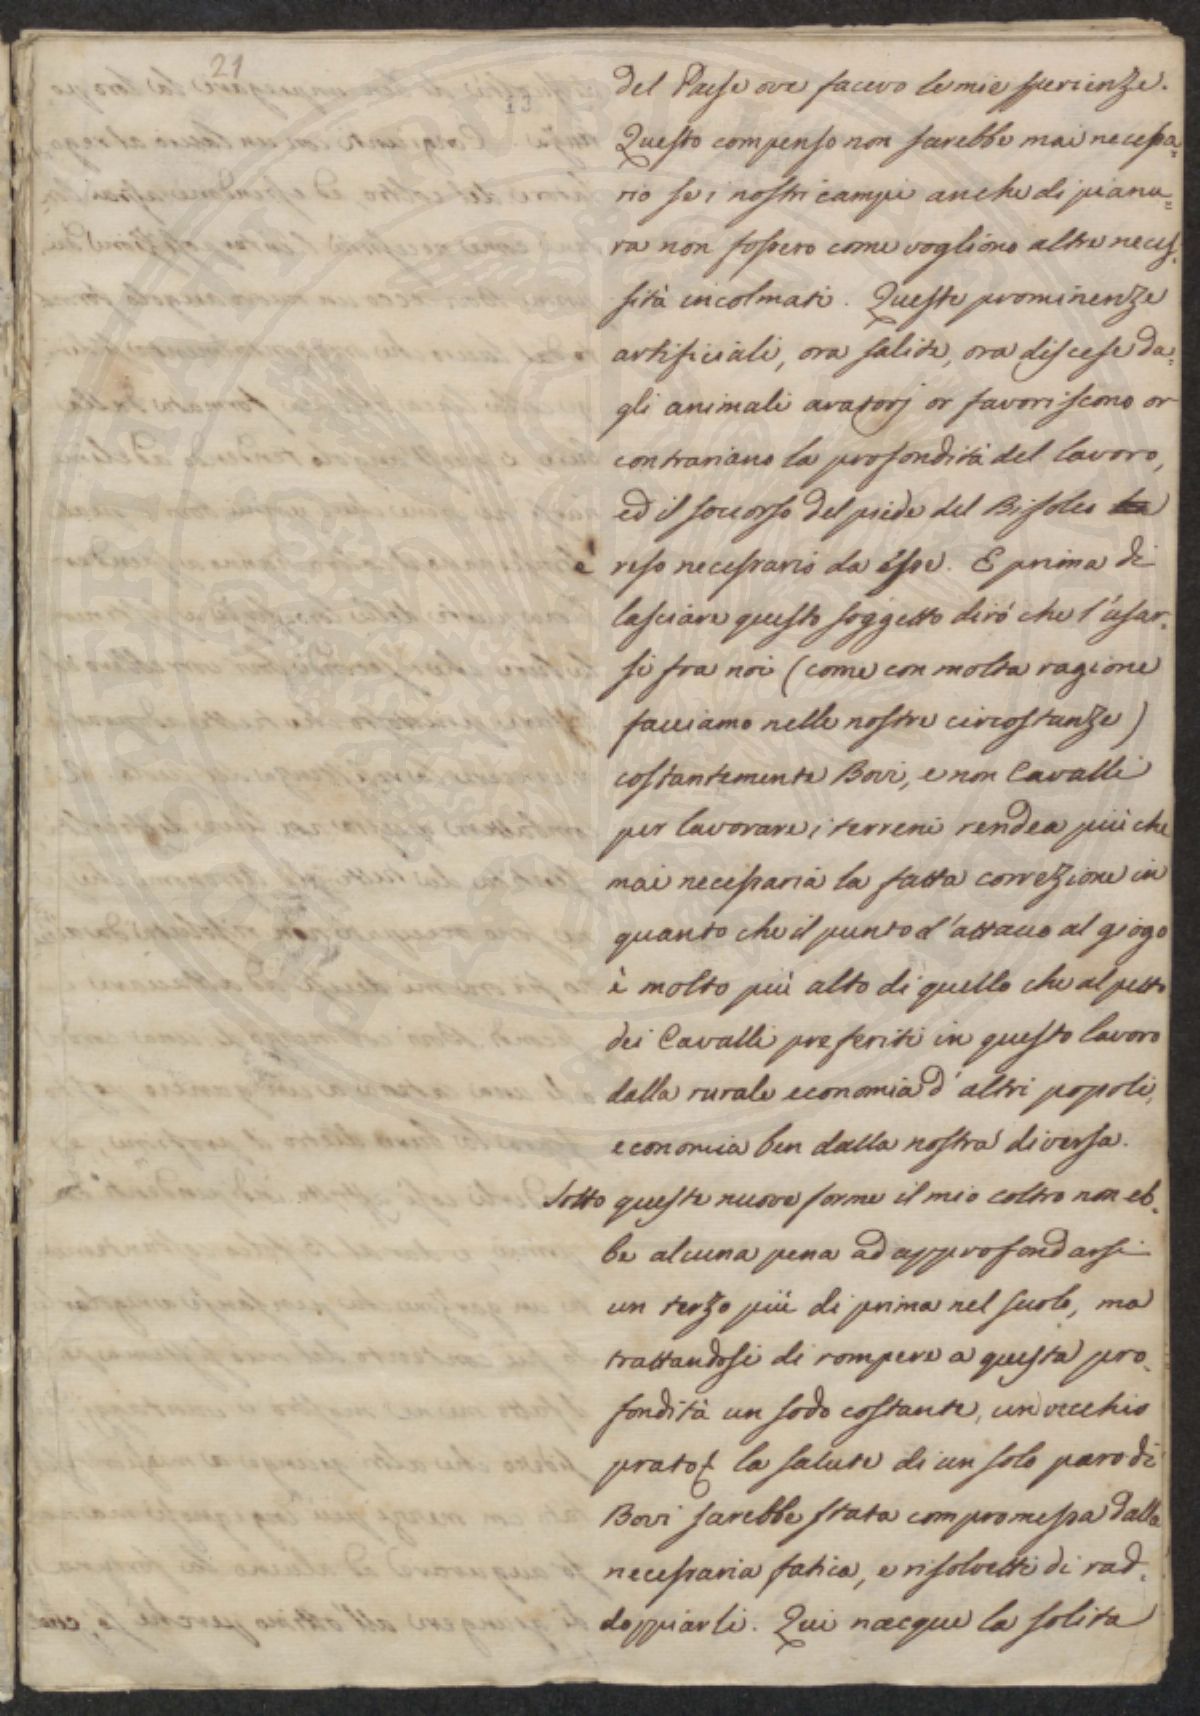 21
del Paese ove facevo le mie sperienze.
Questo compenso non sarebbe mai necessa=
rio se i nostri campi anche di pianu=
ra non fossero come vogliono altre neces=
sità incolmati. Queste prominenze
artificiali, ora salite, ora discese da=
gli animali aratorj or favoriscono or
contrariano la profondità del lavoro,
ed il soccorso del piede del Bifolco ha
è reso necessario da esse. E prima di
lasciare questo soggetto dirò che l'usar=
si fra noi (come con molta ragione
facciamo nelle nostre circostanze)
costantemente Bovi, e non Cavalli
per lavorare i terreni rendea più che
mai necessaria la fatta correzione in
quanto che il punto d'attacco al giogo
è molto più alto di quello che al petto
dei Cavalli preferiti in questo lavoro
dalla rurale economia d'altri popoli,
economia ben dalla nostra diversa.
Sotto queste nuove forme il mio coltro non eb=
be alcuna pena ad approfondarsi
un terzo più di prima nel suolo, ma
trattandosi di rompere a questa pro=
fondità un sodo costante, un vecchio
prato la salute di un solo paro di
Bovi sarebbe stata compromessa dalla
necessaria fatica, e risolvetti di rad=
doppiarli. Qui nacque la solita